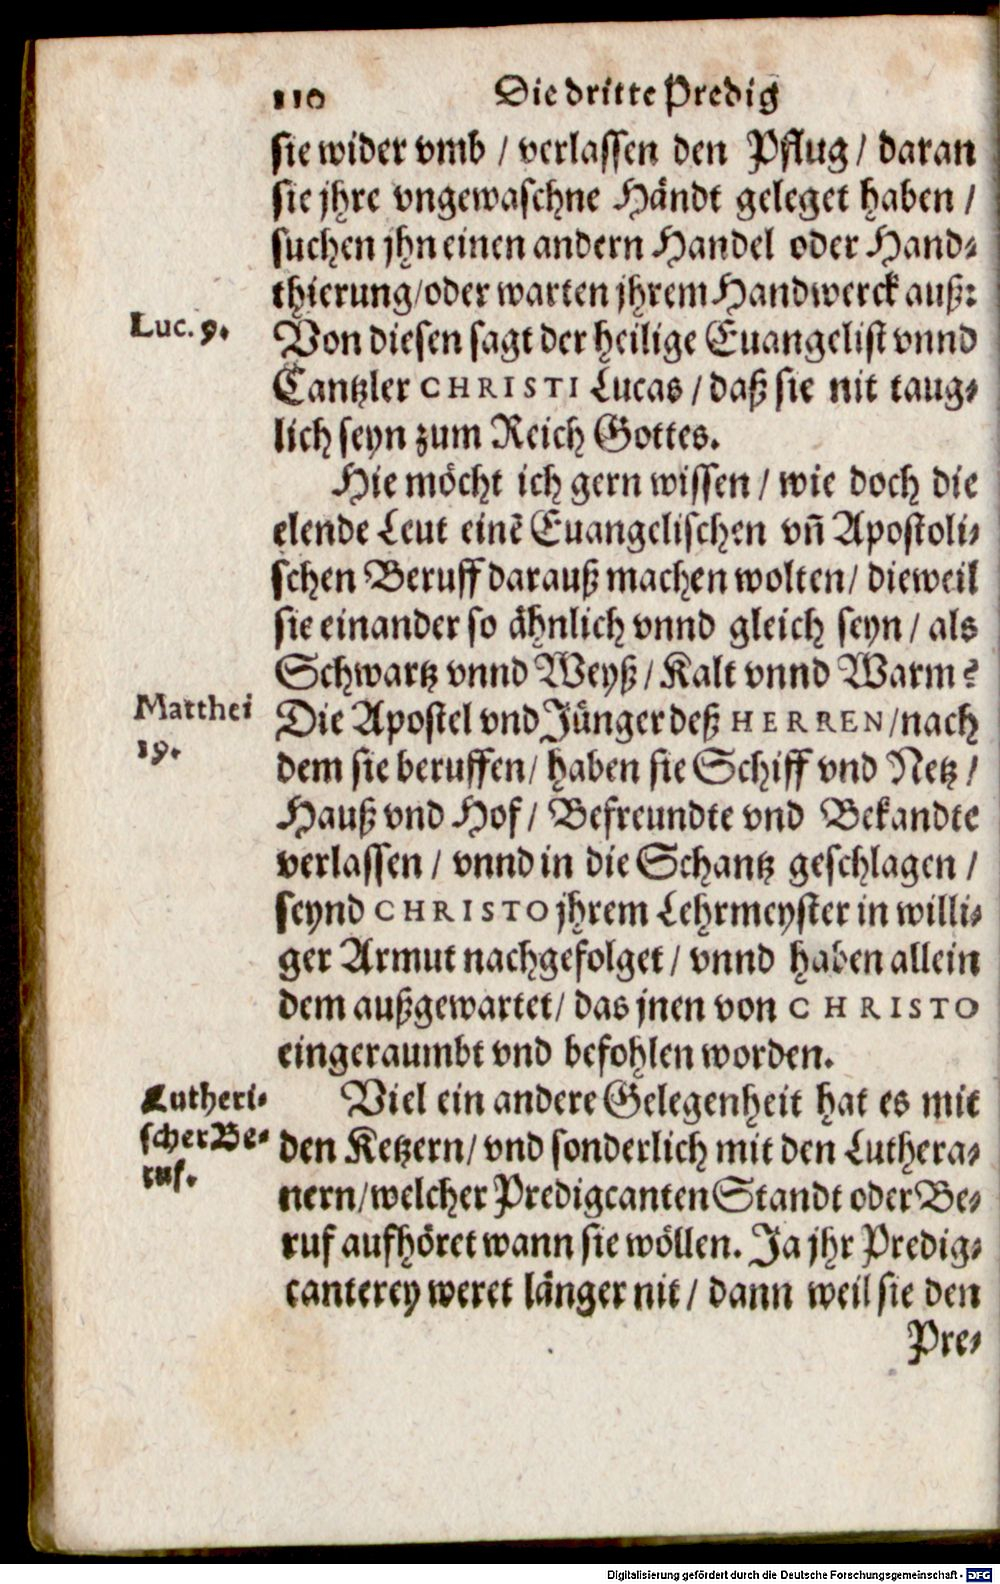 110 Die dritte Predig
sie wider vmb / verlassen den Pflug / daran
sie jhre vngewaschne Händt geleget haben /
suchen jhn einen andern Handel oder Hand⸗
thierung / oder warten jhrem Handwerck auß:
Luc. 9.
Von diesen sagt der heilige Euangelist vnnd
Cantzler CHRISTI Lucas / daß sie nit taug⸗
lich seyn zum Reich Gottes.
Hie möcht ich gern wissen / wie doch die
elende Leut einē Euangelischen vn̄ Apostoli⸗
schen Beruff darauß machen wolten / dieweil
sie einander so ähnlich vnnd gleich seyn / als
Schwartz vnnd Weyß / Kalt vnnd Warm?
Matthei
19.
Die Apostel vnd Jünger deß HERREN / nach
dem sie beruffen / haben sie Schiff vnd Netz /
Hauß vnd Hof / Befreundte vnd Bekandte
verlassen / vnnd in die Schantz geschlagen /
seynd CHRISTO jhrem Lehrmeyster in willi⸗
ger Armut nachgefolget / vnnd haben allein
dem außgewartet / das jnen von CHRISTO
eingeraumbt vnd befohlen worden.
Lutheri⸗
scher Be⸗
ruf.
Viel ein andere Gelegenheit hat es mit
den Ketzern / vnd sonderlich mit den Luthera⸗
nern / welcher Predigcanten Standt oder Be⸗
ruf aufhöret wann sie wöllen. Ja jhr Predig⸗
canterey weret länger nit / dann weil sie den
Pre⸗
Digitalisierung gefördert durch die Deutsche Forschungsgemeinschaft - DFG